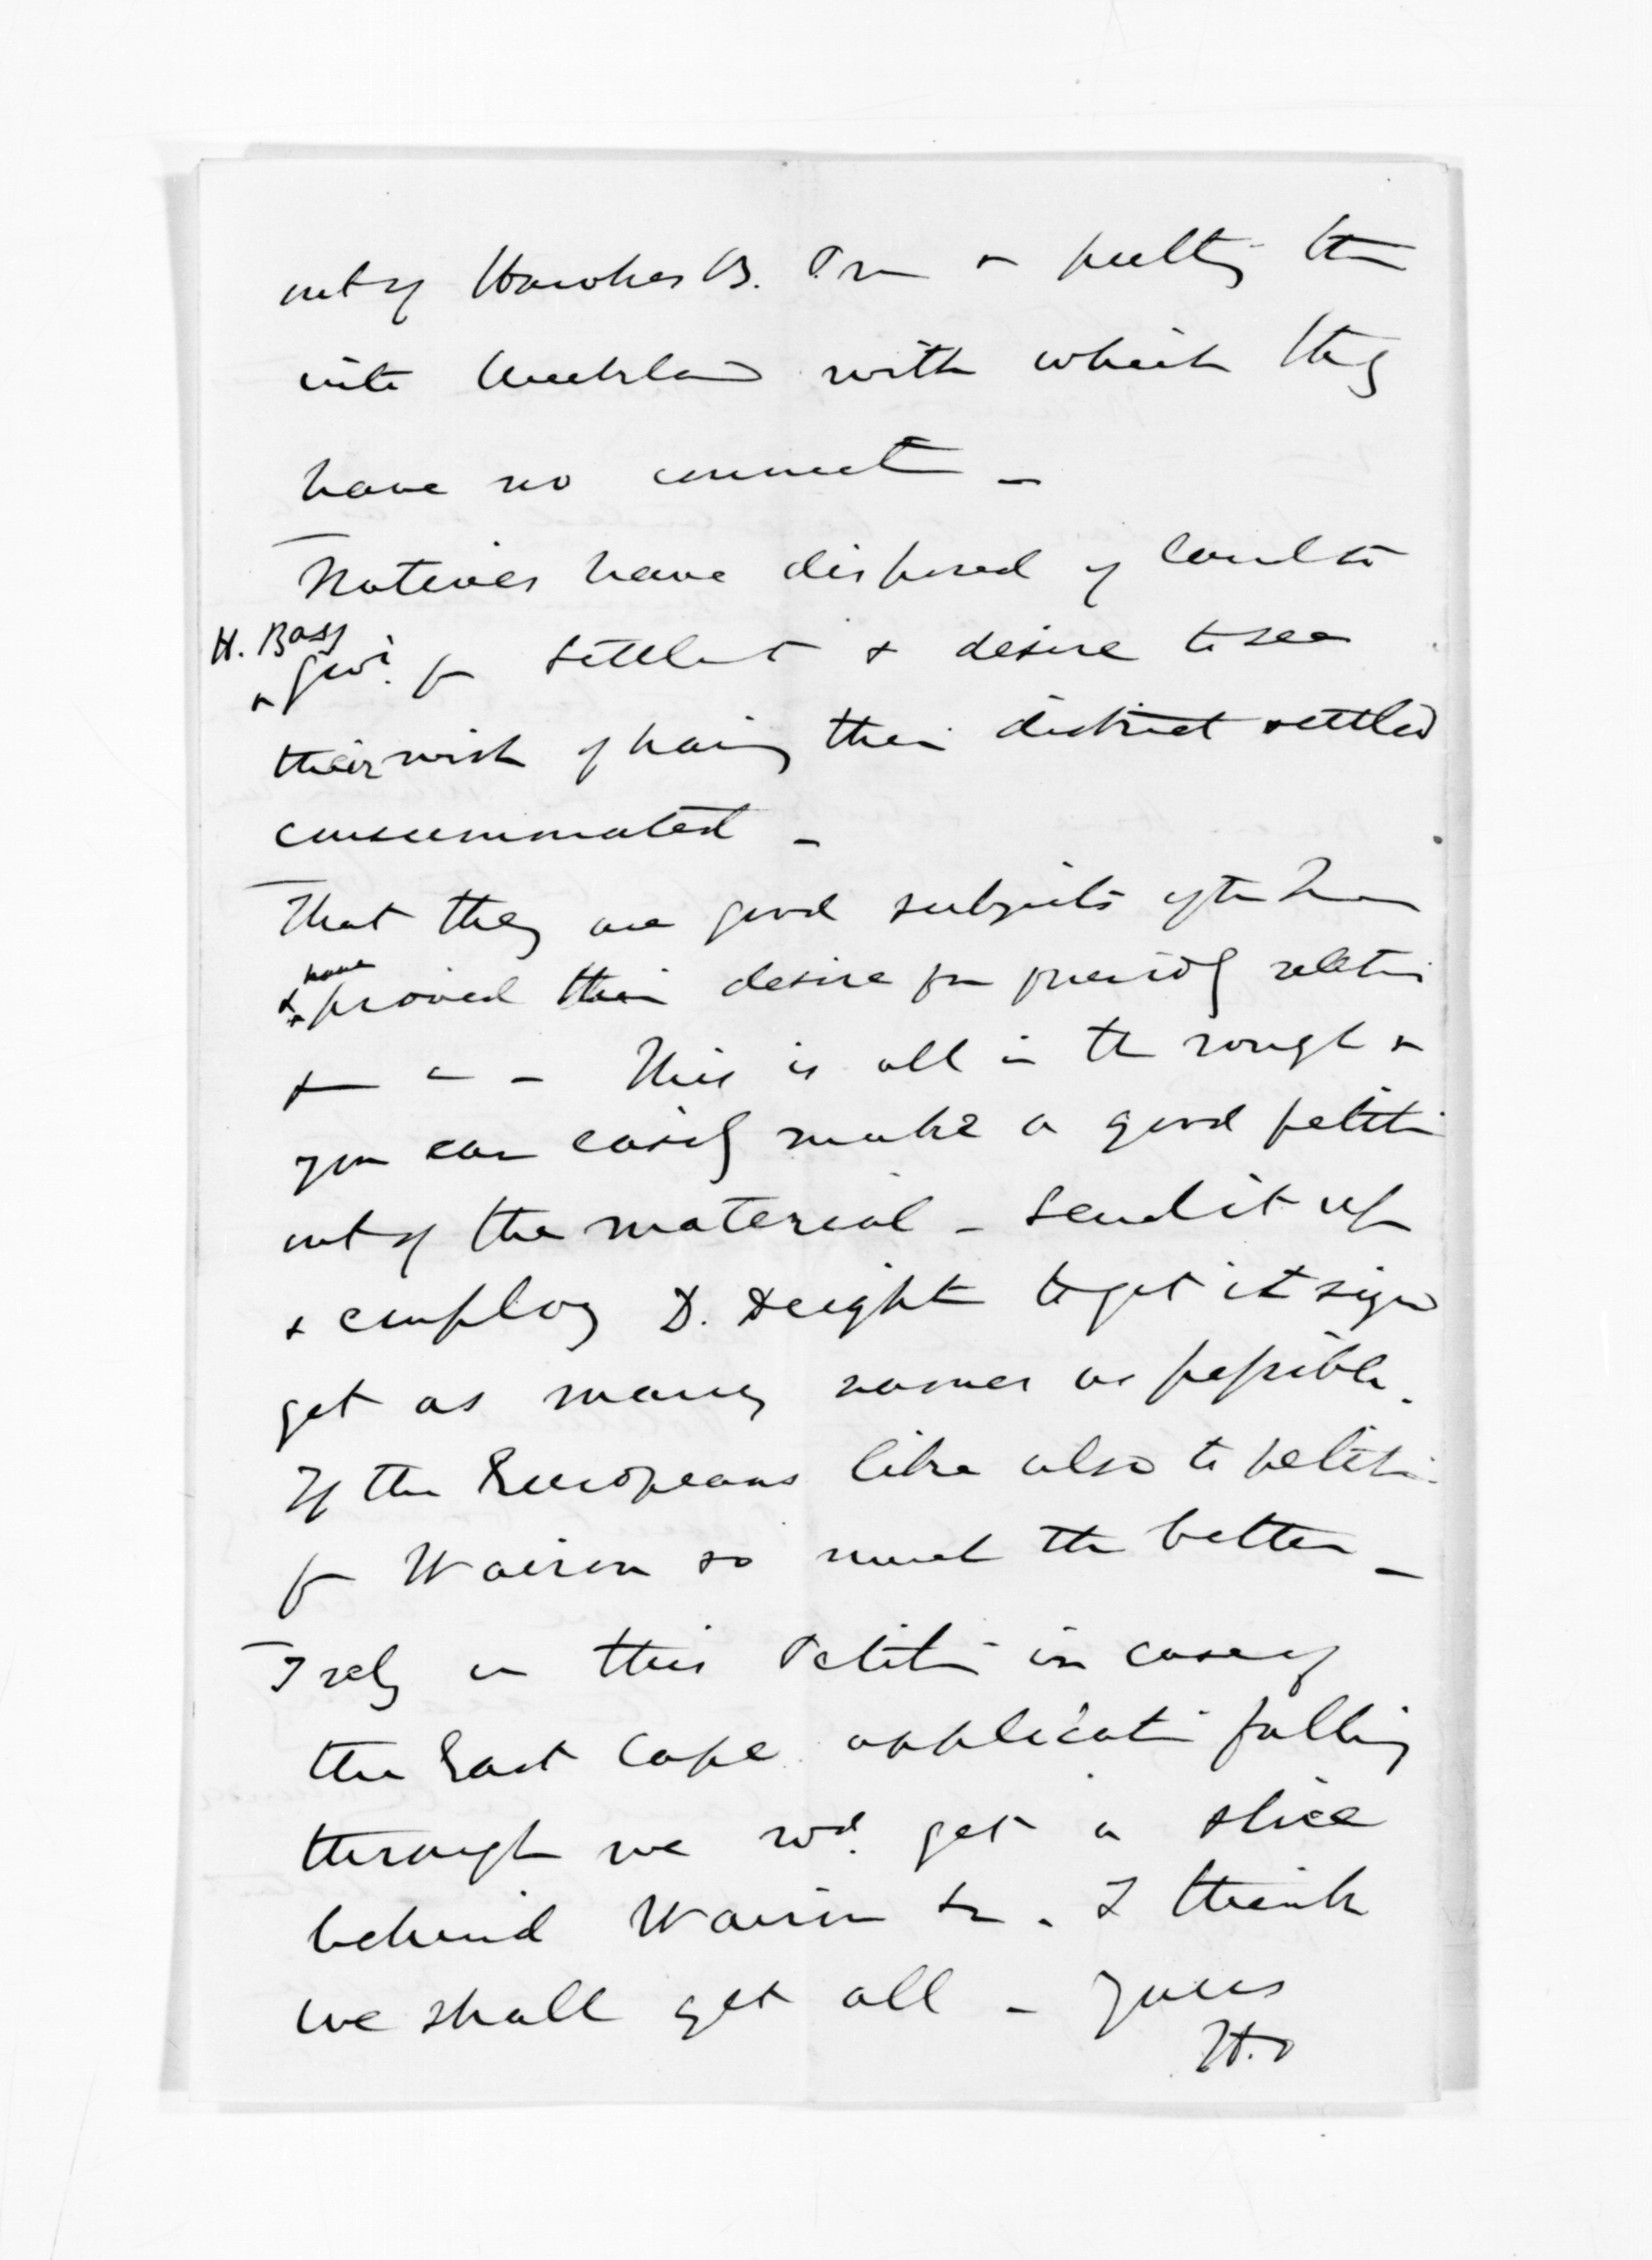 out of Hawkes B. Prov & putting them
into Auckland with which they
have no connect –
Natives have disposed of land to
H. Bay
govt. for settlement & desire to see
their wish of having their district settled
consummated –
That they are good subjects of the
have
& proved their desire for friendly relations
This is all in the rough &
you can easily make a good petition
out of the material – Send it up
& employ D. Deighton to get it signed
get as many names as possible.
If the Europeans like also to petition
for Wairoa so much the better –
I rely on this Petition in case of
the East Cape application falling
through we wd. get a slice
behind Wairoa &c. I think
we shall get all – Yours